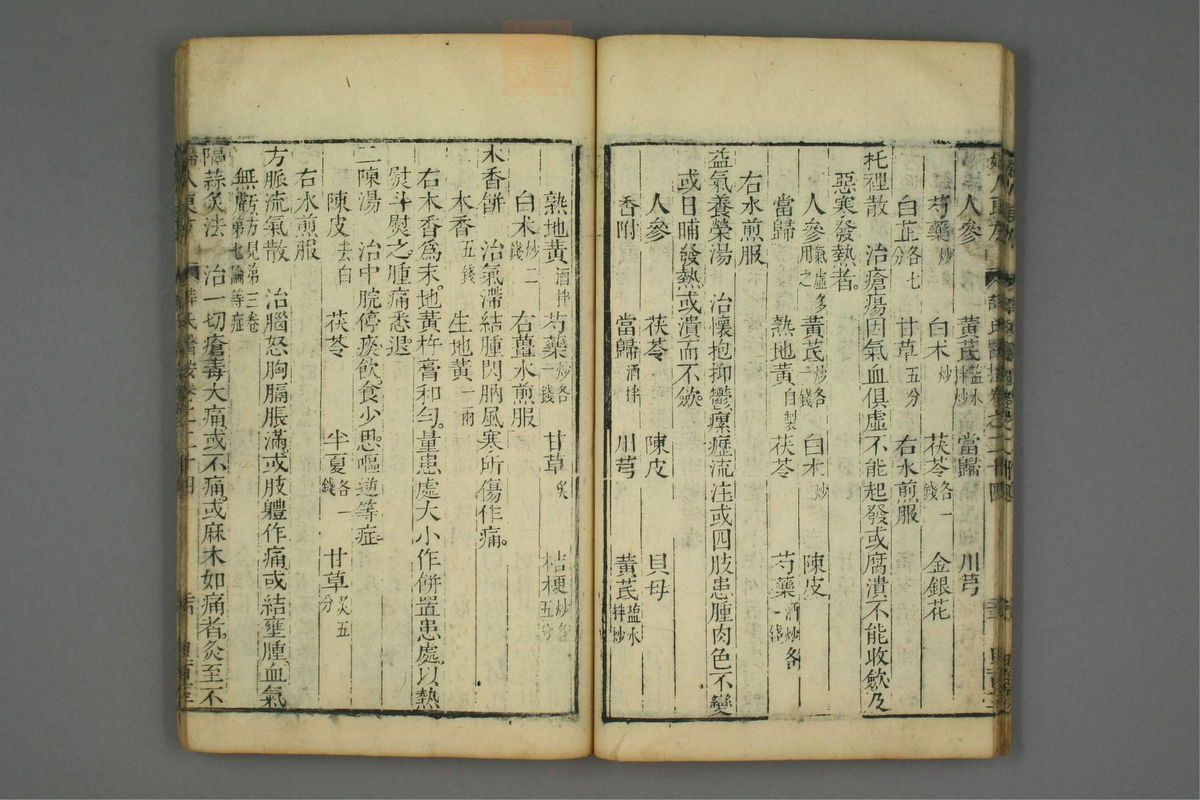 人參 黃芪鹽水拌炒 當歸 川芎
芍藥炒 白朮炒 茯苓各一錢 金銀花
白芷各七分 甘草五分 右水煎服
托裡散 治瘡瘍因氣血俱虛不能起發或腐潰不能收斂及
惡寒發熱者
人參氣虛多用之 黃芪炒各一錢 白朮炒 陳皮
當歸 熟地黃自製 茯苓 芍藥酒炒各一錢
右水煎服
益氣養榮湯 治懷抱抑鬱瘰癧流注或四肢患腫肉色不變
或日晡發熱或潰而不斂
人參 茯苓 陳皮 貝母
香附 當歸酒拌 川芎 黃芪鹽水拌炒
熟地黃酒拌 芍藥炒各一錢 甘草炙 桔梗炒各五分
白朮炒二錢 右薑水煎服
木香餅 治氣滯結腫閃肭風寒所傷作痛
木香五錢 生地黃一兩
右木香爲末地黃杵膏和勻量患處大小作餅置患處以熱
熨斗熨之腫痛悉退
二陳湯 治中脘停痰飲食少思嘔逆等症
陳皮去白 茯苓 半夏各一錢 甘草炙五分
右水煎服
方脈流氣散 治腦怒胸膈脹滿或肢體作痛或結壅腫血氣
無虧方見第三卷第七論等症
隔蒜灸法 治一切瘡毒大痛或不痛或麻木如痛者灸至不